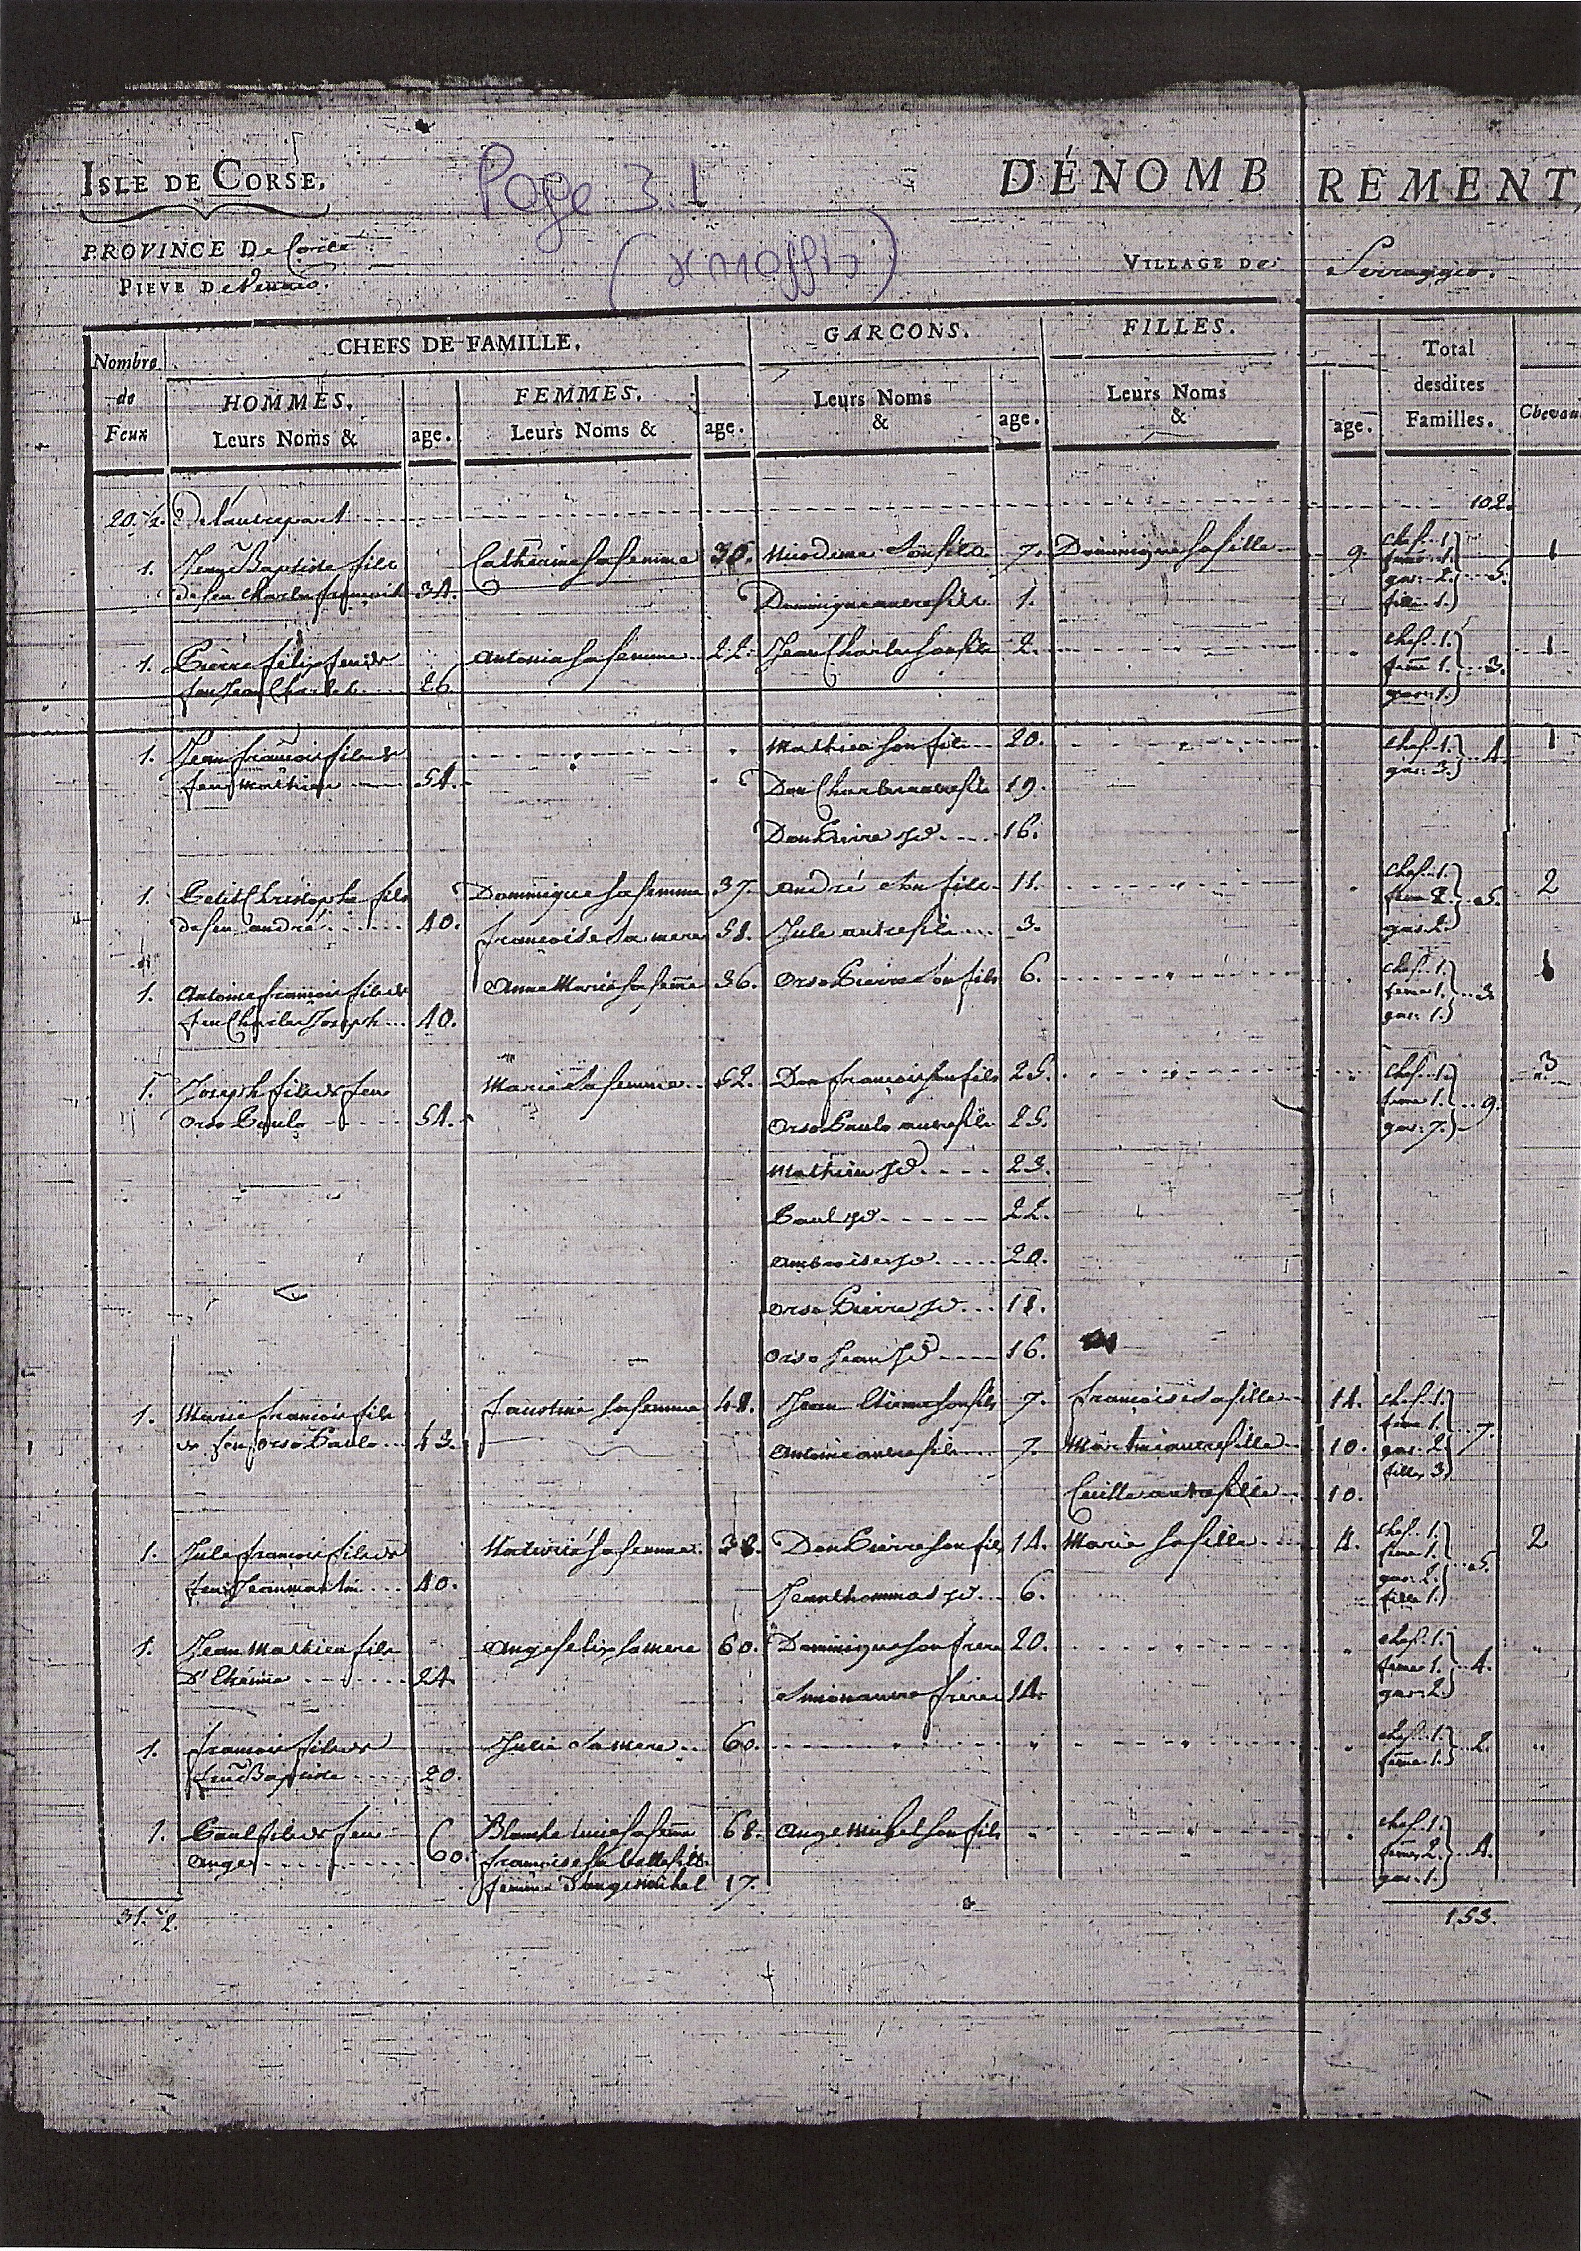 ISLE DE CORSE,
Page 3.1
DÉNOMB REMENT,
PROVINCE De Corte
PIEVE De Venaco.
VILLAGE De Serraggio.
CHEFS DE FAMILLE. GARCONS. FILLES.
Nombre de Feux HOMMES. Leurs Noms & age. FEMMES. Leurs Noms & age. Leurs Noms & age. Leurs Noms & age. Total desdites Familles. Chevau
20. 1/2. De l'autre part 102.
1. Jean Baptiste fils Catherine sa femme 36. Nicodeme son fils 7. Dominique sa fille 9. chef. 1. feme. 1. 1
de feu Charles françois 34. Dominique autre fils 1. gar. 2. fille. 1. 5.
1. Pierre felix fils de Antonia sa femme 22. Jean Charles son fils 2. chef. 1. feme 1. 3. 1
feu Jean Charles 26. gar. 1.
1. Jean françois fils de Mathieu son fils 20. chef. 1. 4. 1
feu Mathieu 54. Don Charles autre fils 19. gar. 3.
Don Pierre id. 16.
1. Petit Christophe fils Dominique sa femme 37. André son fils 11. chef. 1. feme 2. 5. 2
de feu andré 40. françoise sa mere 58. Jule autre fils 3. gar. 2.
1. Antoine françois fils de Anne Marie sa feme 36. Orso Pierre son fils 6. chef. 1. feme 1. 3.
feu Charles Joseph 40. gar. 1.
1. Joseph fils de feu Marie sa femme 52. Don françois son fils 25. chef. 1. 3
Orso Paulo 54. Orso Paulo autre fils 25. feme 1. 9. gar. 7.
Mathieu id. 23.
Paul id. 22.
Ambroise id. 20.
Orso Pierre id. 18.
Orso Jean id. 16.
1. françois fils faustine sa femme 48. Jean Etienne son fils 7. françoise sa fille 14. chef. 1. feme 1.
de feu Orso Paulo 43. Antoine autre fils 7. autre fille 10. gar. 2. 7.
autre fille 10. filles 3.
1. Jule françois fils de sa femme 38. Don Pierre son fils 14. Marie sa fille 4. chef. 1. feme 1. 5. 2
feu Jean martin 40. Jean thommas id. 6. gar. 2. fille 1.
1. Jean Mathieu fils Ange felix sa mere 60. Dominique son frere 20. chef. 1. feme 1. 4.
24. Simon autre frere 14. gar. 2.
1. francois fils de Julie sa mere 60. chef. 1. 2.
feu Baptiste 20. feme 1.
1. Paul fils de feu Blanche sa feme 68. Ange Michel son fils chef. 1.
Ange 60. françoise sa belle fille feme 2. 4.
femme d'ange michel 17. gar. 1.
31. 1/2. 153.